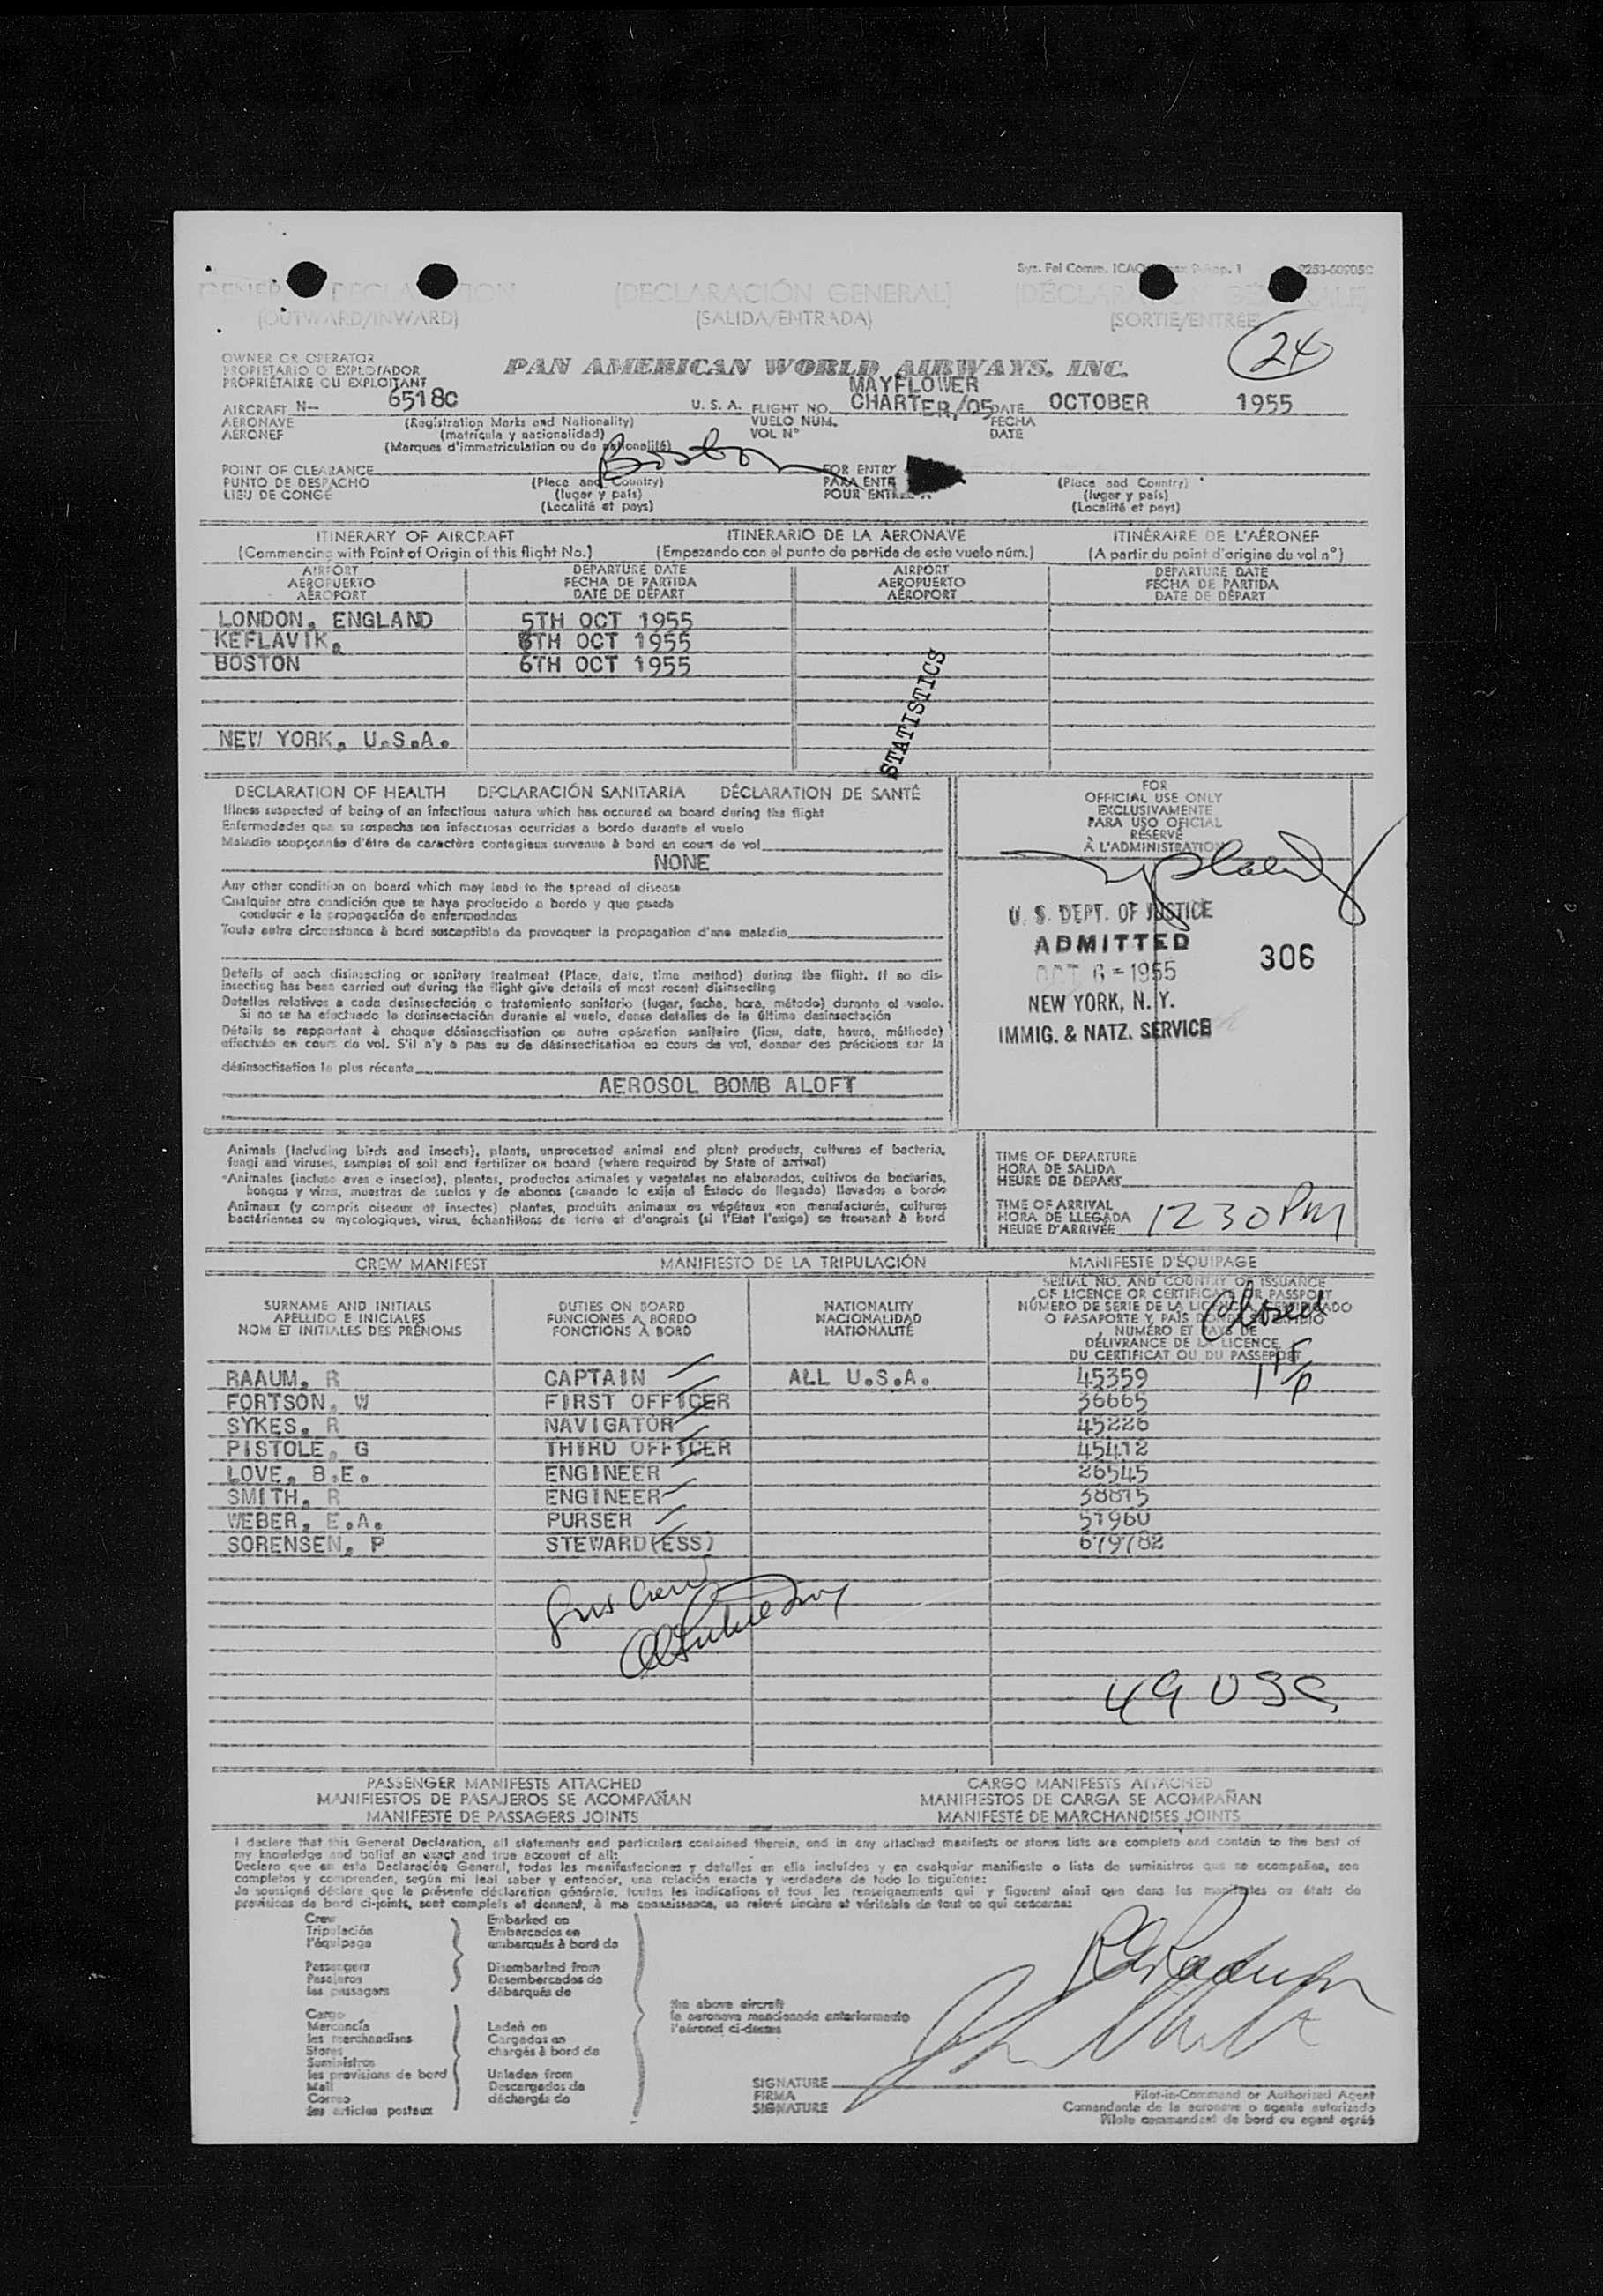 Sys. Fel Comm. ICAO
9253-60905C
(DECLARACIÓN GENERAL)
(OUTWARD/INWARD) (SALIDA/ENTRADA) (SORTIE/ENTRÉE)
24
OWNER OR OPERATOR
PROPIETARIO O EXPLOTADOR
PROPRIÉTAIRE OU EXPLOITANT
PAN AMERICAN WORLD AIRWAYS, INC.
MAYFLOWER
AIRCRAFT N— 6518C U. S. A. FLIGHT NO. CHARTER/05 DATE OCTOBER 1955
AERONAVE (Registration Marks and Nationality) VUELO NÚM. FECHA
AÉRONEF (matrícula y nacionalidad) VOL N° DATE
(Marques d'immatriculation ou de nationalité)
Boston
POINT OF CLEARANCE FOR ENTRY
PUNTO DE DESPACHO (Place and Country) PARA ENTR (Place and Country)
LIEU DE CONGÉ (lugar y país) POUR ENTRÉE A (lugar y país)
(Localité et pays) (Localité et pays)
ITINERARY OF AIRCRAFT ITINERARIO DE LA AERONAVE ITINÉRAIRE DE L'AÉRONEF
(Commencing with Point of Origin of this flight No.) (Empezando con el punto de partida de este vuelo núm.) (A partir du point d'origine du vol n°)
AIRPORT DEPARTURE DATE AIRPORT DEPARTURE DATE
AEROPUERTO FECHA DE PARTIDA AEROPUERTO FECHA DE PARTIDA
AÉROPORT DATE DE DÉPART AÉROPORT DATE DE DÉPART
LONDON, ENGLAND 5TH OCT 1955
KEFLAVIK, 6TH OCT 1955
BOSTON 6TH OCT 1955
STATISTICS
NEW YORK, U.S.A.
DECLARATION OF HEALTH DECLARACIÓN SANITARIA DÉCLARATION DE SANTÉ
Illness suspected of being of an infectious nature which has occured on board during the flight
Enfermedades que se sospecha son infecciosas ocurridas a bordo durante el vuelo
Maladie soupçonnée d'être de caractère contagieux survenue à bord en cours de vol
NONE
Any other condition on board which may lead to the spread of disease
Cualquier otra condición que se haya producido a bordo y que pueda
conducir a la propagación de enfermedades
Toute autre circonstance à bord susceptible de provoquer la propagation d'une maladie
Details of each disinsecting or sanitary treatment (Place, date, time method) during the flight. If no dis-
insecting has been carried out during the flight give details of most recent disinsecting
Detalles relativos a cada desinsectación o tratamiento sanitario (lugar, fecha, hora, método) durante el vuelo.
Si no se ha efectuado la desinsectación durante el vuelo, dense detalles de la última desinsectación
Détails se rapportant à chaque désinsectisation ou autre opération sanitaire (lieu, date, heure, méthode)
effectuée en cours de vol. S'il n'y a pas eu de désinsectisation au cours de vol, donner des précisions sur la
désinsectisation la plus récente
AEROSOL BOMB ALOFT
FOR
OFFICIAL USE ONLY
EXCLUSIVAMENTE
PARA USO OFICIAL
RÉSERVÉ
À L'ADMINISTRATION
U. S. DEPT. OF JUSTICE
ADMITTED
OCT 6 - 1955 306
NEW YORK, N. Y.
IMMIG. & NATZ. SERVICE
Animals (Including birds and insects), plants, unprocessed animal and plant products, cultures of bacteria,
fungi and viruses, samples of soil and fertilizer on board (where required by State of arrival)
Animales (incluso aves e insectos), plantas, productos animales y vegetales no elaborados, cultivos de bacterias,
hongos y virus, muestras de suelos y de abonos (cuando lo exija el Estado de llegada) llevados a bordo
Animaux (y compris oiseaux et insectes) plantes, produits animaux ou végétaux non manufacturés, cultures
bactériennes ou mycologiques, virus, échantillons de terre et d'engrais (si l'Etat l'exige) se trouvant à bord
TIME OF DEPARTURE
HORA DE SALIDA
HEURE DE DÉPART
TIME OF ARRIVAL
HORA DE LLEGADA
HEURE D'ARRIVÉE
1230 PM
CREW MANIFEST MANIFIESTO DE LA TRIPULACIÓN MANIFESTE D'ÉQUIPAGE
SURNAME AND INITIALS
APELLIDO E INICIALES
NOM ET INITIALES DES PRÉNOMS
DUTIES ON BOARD
FUNCIONES A BORDO
FONCTIONS À BORD
NATIONALITY
NACIONALIDAD
NATIONALITÉ
SERIAL NO. AND COUNTRY OF ISSUANCE
OF LICENCE OR CERTIFICATE OR PASSPORT
NÚMERO DE SERIE DE LA LICENCIA, CERTIFICADO
O PASAPORTE Y PAÍS DONDE SE EXPIDIÓ
NUMÉRO ET PAYS DE
DÉLIVRANCE DE LA LICENCE
DU CERTIFICAT OU DU PASSEPORT
RAAUM, R CAPTAIN ALL U.S.A. 45359
FORTSON, W FIRST OFFICER 36665
SYKES, R NAVIGATOR 45226
PISTOLE, G THIRD OFFICER 45412
LOVE, B.E. ENGINEER 26545
SMITH, R ENGINEER 38815
WEBER, E.A. PURSER 51960
SORENSEN, P STEWARD(ESS) 679782
49 USC
PASSENGER MANIFESTS ATTACHED CARGO MANIFESTS ATTACHED
MANIFIESTOS DE PASAJEROS SE ACOMPAÑAN MANIFIESTOS DE CARGA SE ACOMPAÑAN
MANIFESTE DE PASSAGERS JOINTS MANIFESTE DE MARCHANDISES JOINTS
I declare that this General Declaration, all statements and particulars contained therein, and in any attached manifests or stores lists are complete and contain to the best of
my knowledge and belief an exact and true account of all:
Declaro que en esta Declaración General, todas las manifestaciones y detalles en ella incluídos y en cualquier manifiesto o lista de suministros que se acompañan, son
completos y comprenden, según mi leal saber y entender, una relación exacta y verdadera de todo lo siguiente:
Je soussigné déclare que la présente déclaration générale, toutes les indications et tous les renseignements qui y figurent ainsi que dans les manifestes ou états de
provisions de bord ci-joints, sont complets et donnent, à ma connaissance, un relevé sincère et véritable de tout ce qui concerne:
Crew Embarked on
Tripulación Embarcados en
l'équipage embarqués à bord de
Passengers Disembarked from
Pasajeros Desembarcados de
les passagers débarqués de
the above aircraft
la aeronave mencionada anteriormente
l'aéronef ci-dessus
Cargo
Mercancía Laden on
les merchandises Cargados en
Stores chargés à bord de
Suministros
les provisions de bord Unladen from
Mail Descargados de
Correo déchargés de
les articles postaux
SIGNATURE
FIRMA
SIGNATURE
Pilot-in-Command or Authorized Agent
Comandante de la aeronave o agente autorizado
Pilote commandant de bord ou agent agréé